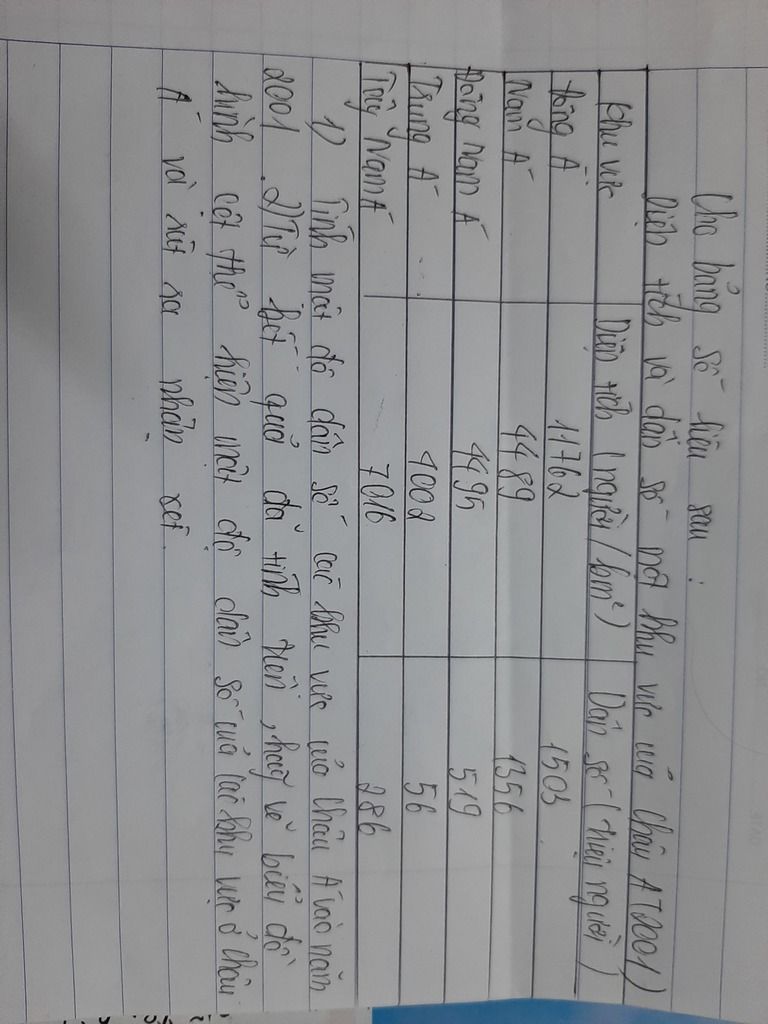 Cho bảng số liệu sau :
Diện tích và dân số một khu vực của Châu Á (2001)
Khu vực Diện tích (nghìn/km²) Dân số (triệu người)
Đông Á 11762 1503
Nam Á 4489 1356
Đông Nam Á 4495 519
Trung Á 4002 56
Tây Nam Á 7016 286
1) Tính mật độ dân số các khu vực của Châu Á vào năm
2001. 2) Từ kết quả đã tính trên, hãy vẽ biểu đồ
hình cột thể hiện mật độ dân số của các khu vực ở Châu
Á và rút ra nhận xét.